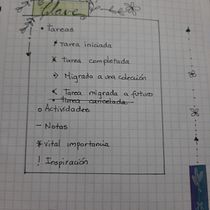 Claves
• Tareas
/ Tarea iniciada
x Tarea completada
> Migrada a una colección
< Tarea migrada a futuro
• Tarea cancelada
o Actividades
- Notas
* Vital importancia
! Inspiración